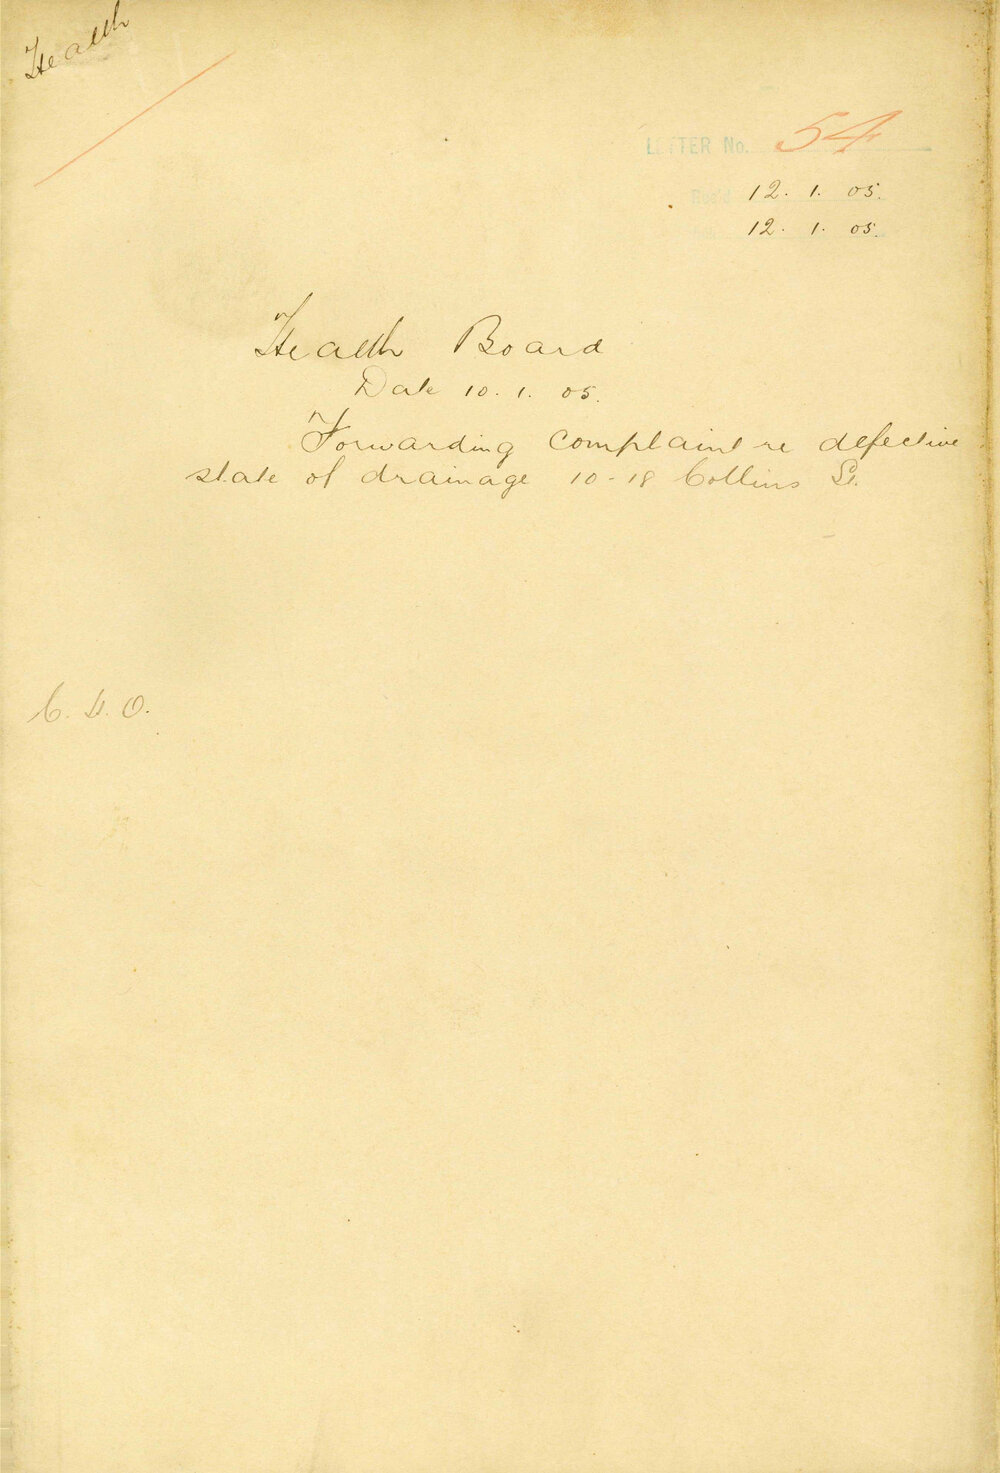 Health
LETTER No. 54
Rec'd 12. 1. 05.
12. 1. 05.
Health Board
Date 10. 1. 05.
Forwarding complaint re defective
state of drainage 10-18 Collins St.
C. H. O.